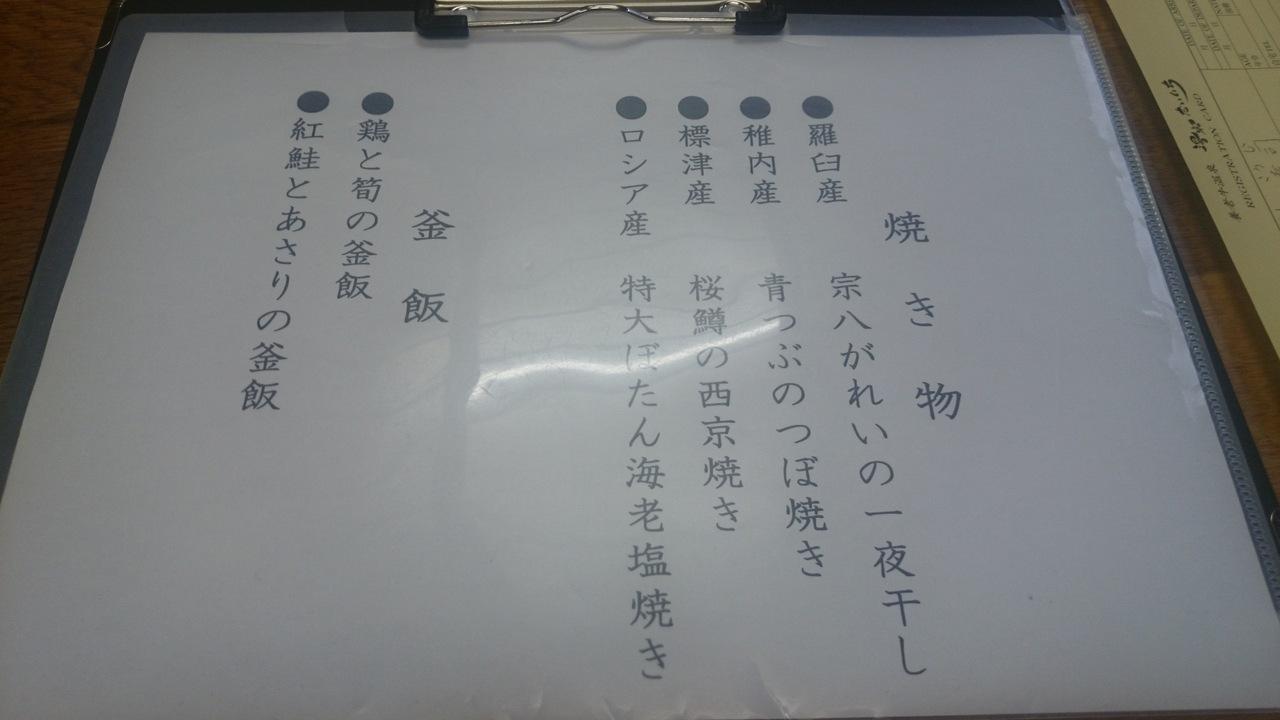 焼き物
●羅臼産 宗八がれいの一夜干し
●稚内産 青つぶのつぼ焼き
●標津産 桜鱒の西京焼き
●ロシア産 特大ぼたん海老塩焼き
釜飯
●鶏と筍の釜飯
●紅鮭とあさりの釜飯
養老牛温泉
REGISTRATION CARD